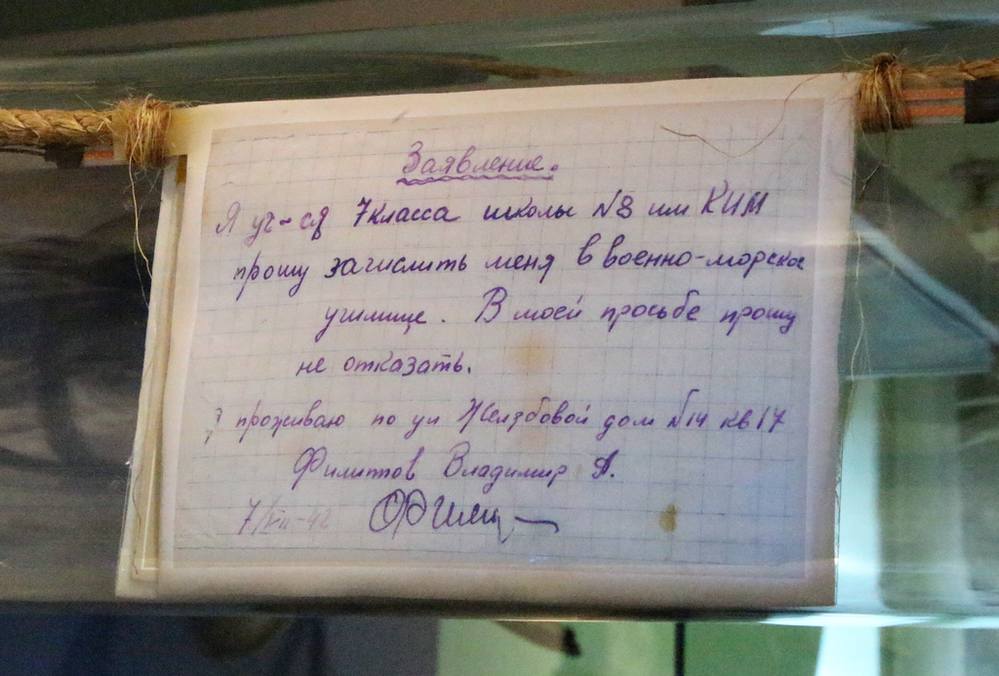 Заявление.
Я уч-ся 7 класса школы №8 им КИМ
прошу зачислить меня в военно-морское
училище. В моей просьбе прошу
не отказать.
проживаю по ул дом №14 кв 17
Филиппов Владимир А.